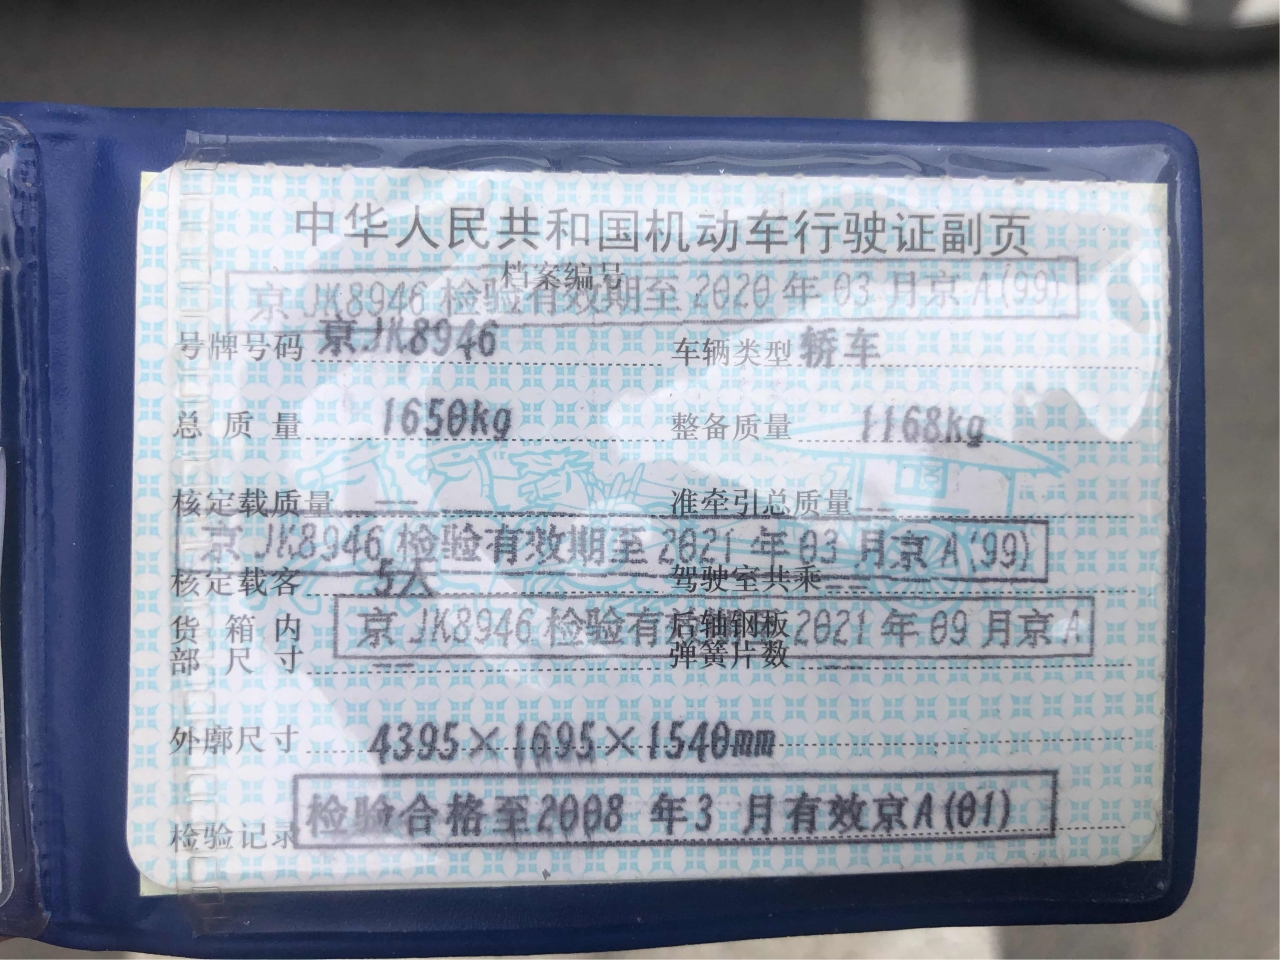 中华人民共和国机动车行驶证副页
档案编号
京JK8946 检验有效期至 2020 年 03 月京 A(99)
号牌号码 京JK8946 车辆类型 轿车
总质量 1650kg 整备质量 1168kg
核定载质量 —— 准牵引总质量 ——
京JK8946 检验有效期至 2021 年 03 月京 A(99)
核定载客 5人 驾驶室共乘 ——
京JK8946 检验有 2021 年 09 月京 A
货箱内部尺寸 —— 后轴钢板弹簧片数 ——
外廓尺寸 4395×1695×1540mm
检验记录 检验合格至2008 年3 月有效京A(01)